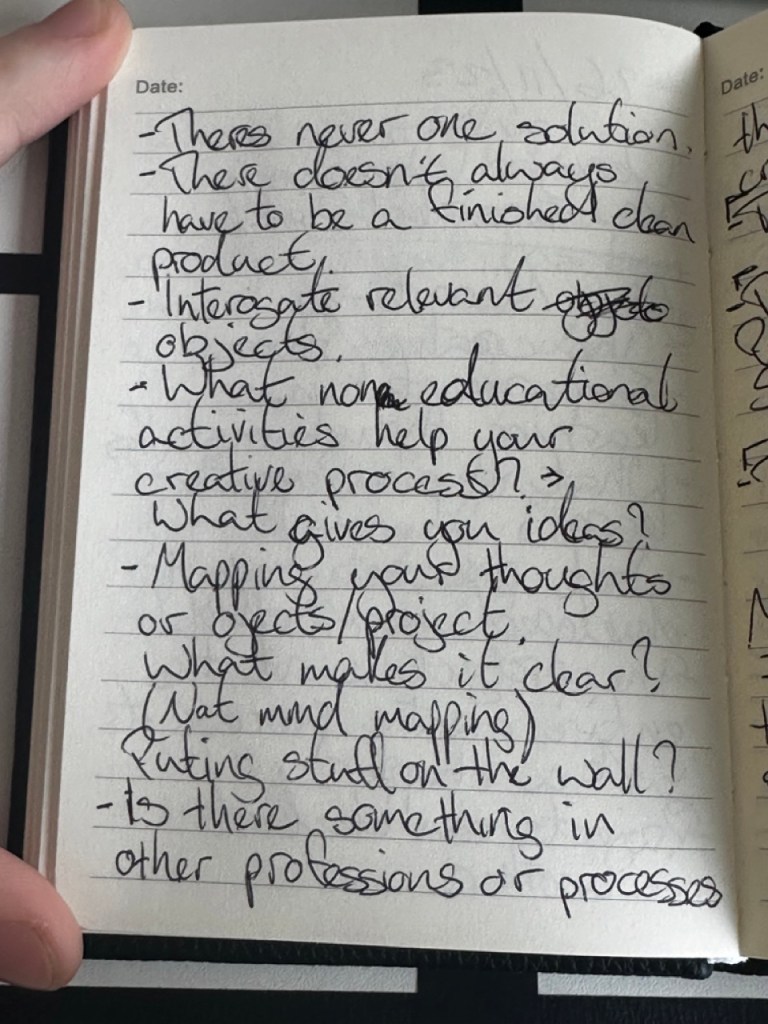 Date:
-Theres never one solution.
-There doesn't always
have to be a finished clean
product.
- Interogate relevant
objects.
- What non educational
activities help your
creative process? →
What gives you ideas?
- Mapping your thoughts
or ojects/project.
What makes it clear?
(Not mind mapping)
Puting stuff on the wall?
- Is there something in
other professions or processes
Date: